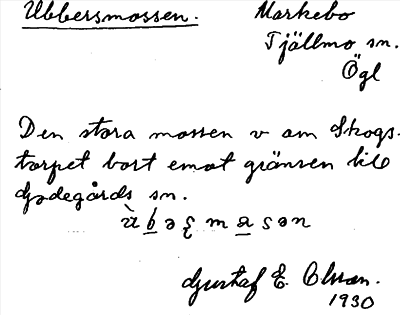 Ubbersmossen. Markebo
Tjällmo sn.
Ögl
Den stora mossen v om Skogs-
torpet bort emot gränsen till
Godegårds sn.
Gustaf E. Olsson.
1930